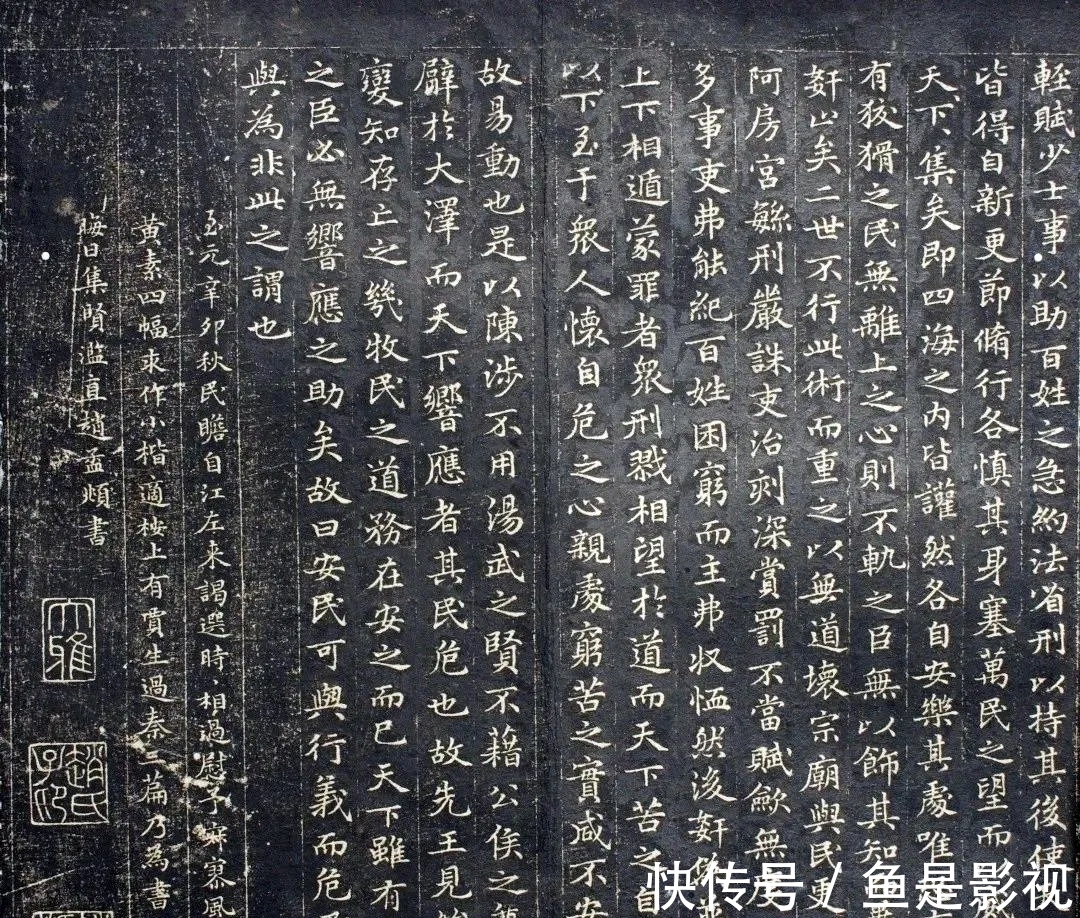 輕賦少士事以助百姓之急約法省刑以持其後使
皆得自新更節脩行各慎其身塞萬民之望而以
天下集矣即四海之內皆讙然各自安樂其處唯
有狡猾之民無離上之心則不軌之臣無以飾其知
姧止矣二世不行此術而重之以無道壞宗廟與民更
阿房宮繇刑嚴誅吏治刻深賞罰不當賦斂無度
多事吏弗能紀百姓困窮而主弗收恤然後姧偽
上下相遁蒙罪者眾刑戮相望於道而天下苦之自
以下至于眾人懷自危之心親處窮苦之實咸不安
故易動也是以陳涉不用湯武之賢不藉公侯之
臂於大澤而天下響應者其民危也故先王見
變知存亡之幾牧民之道務在安之而已天下雖有
之臣必無響應之助矣故曰安民可與行義而危
與為非此之謂也
至元辛卯秋民瞻自江左来謁選時相過慰予寂寥風
黃素四幅求作小楷適桉上有賈生過秦三篇乃為書
晦日集賢滥直趙孟頫書
大雅
趙氏子印
快传号 / 鱼是影视